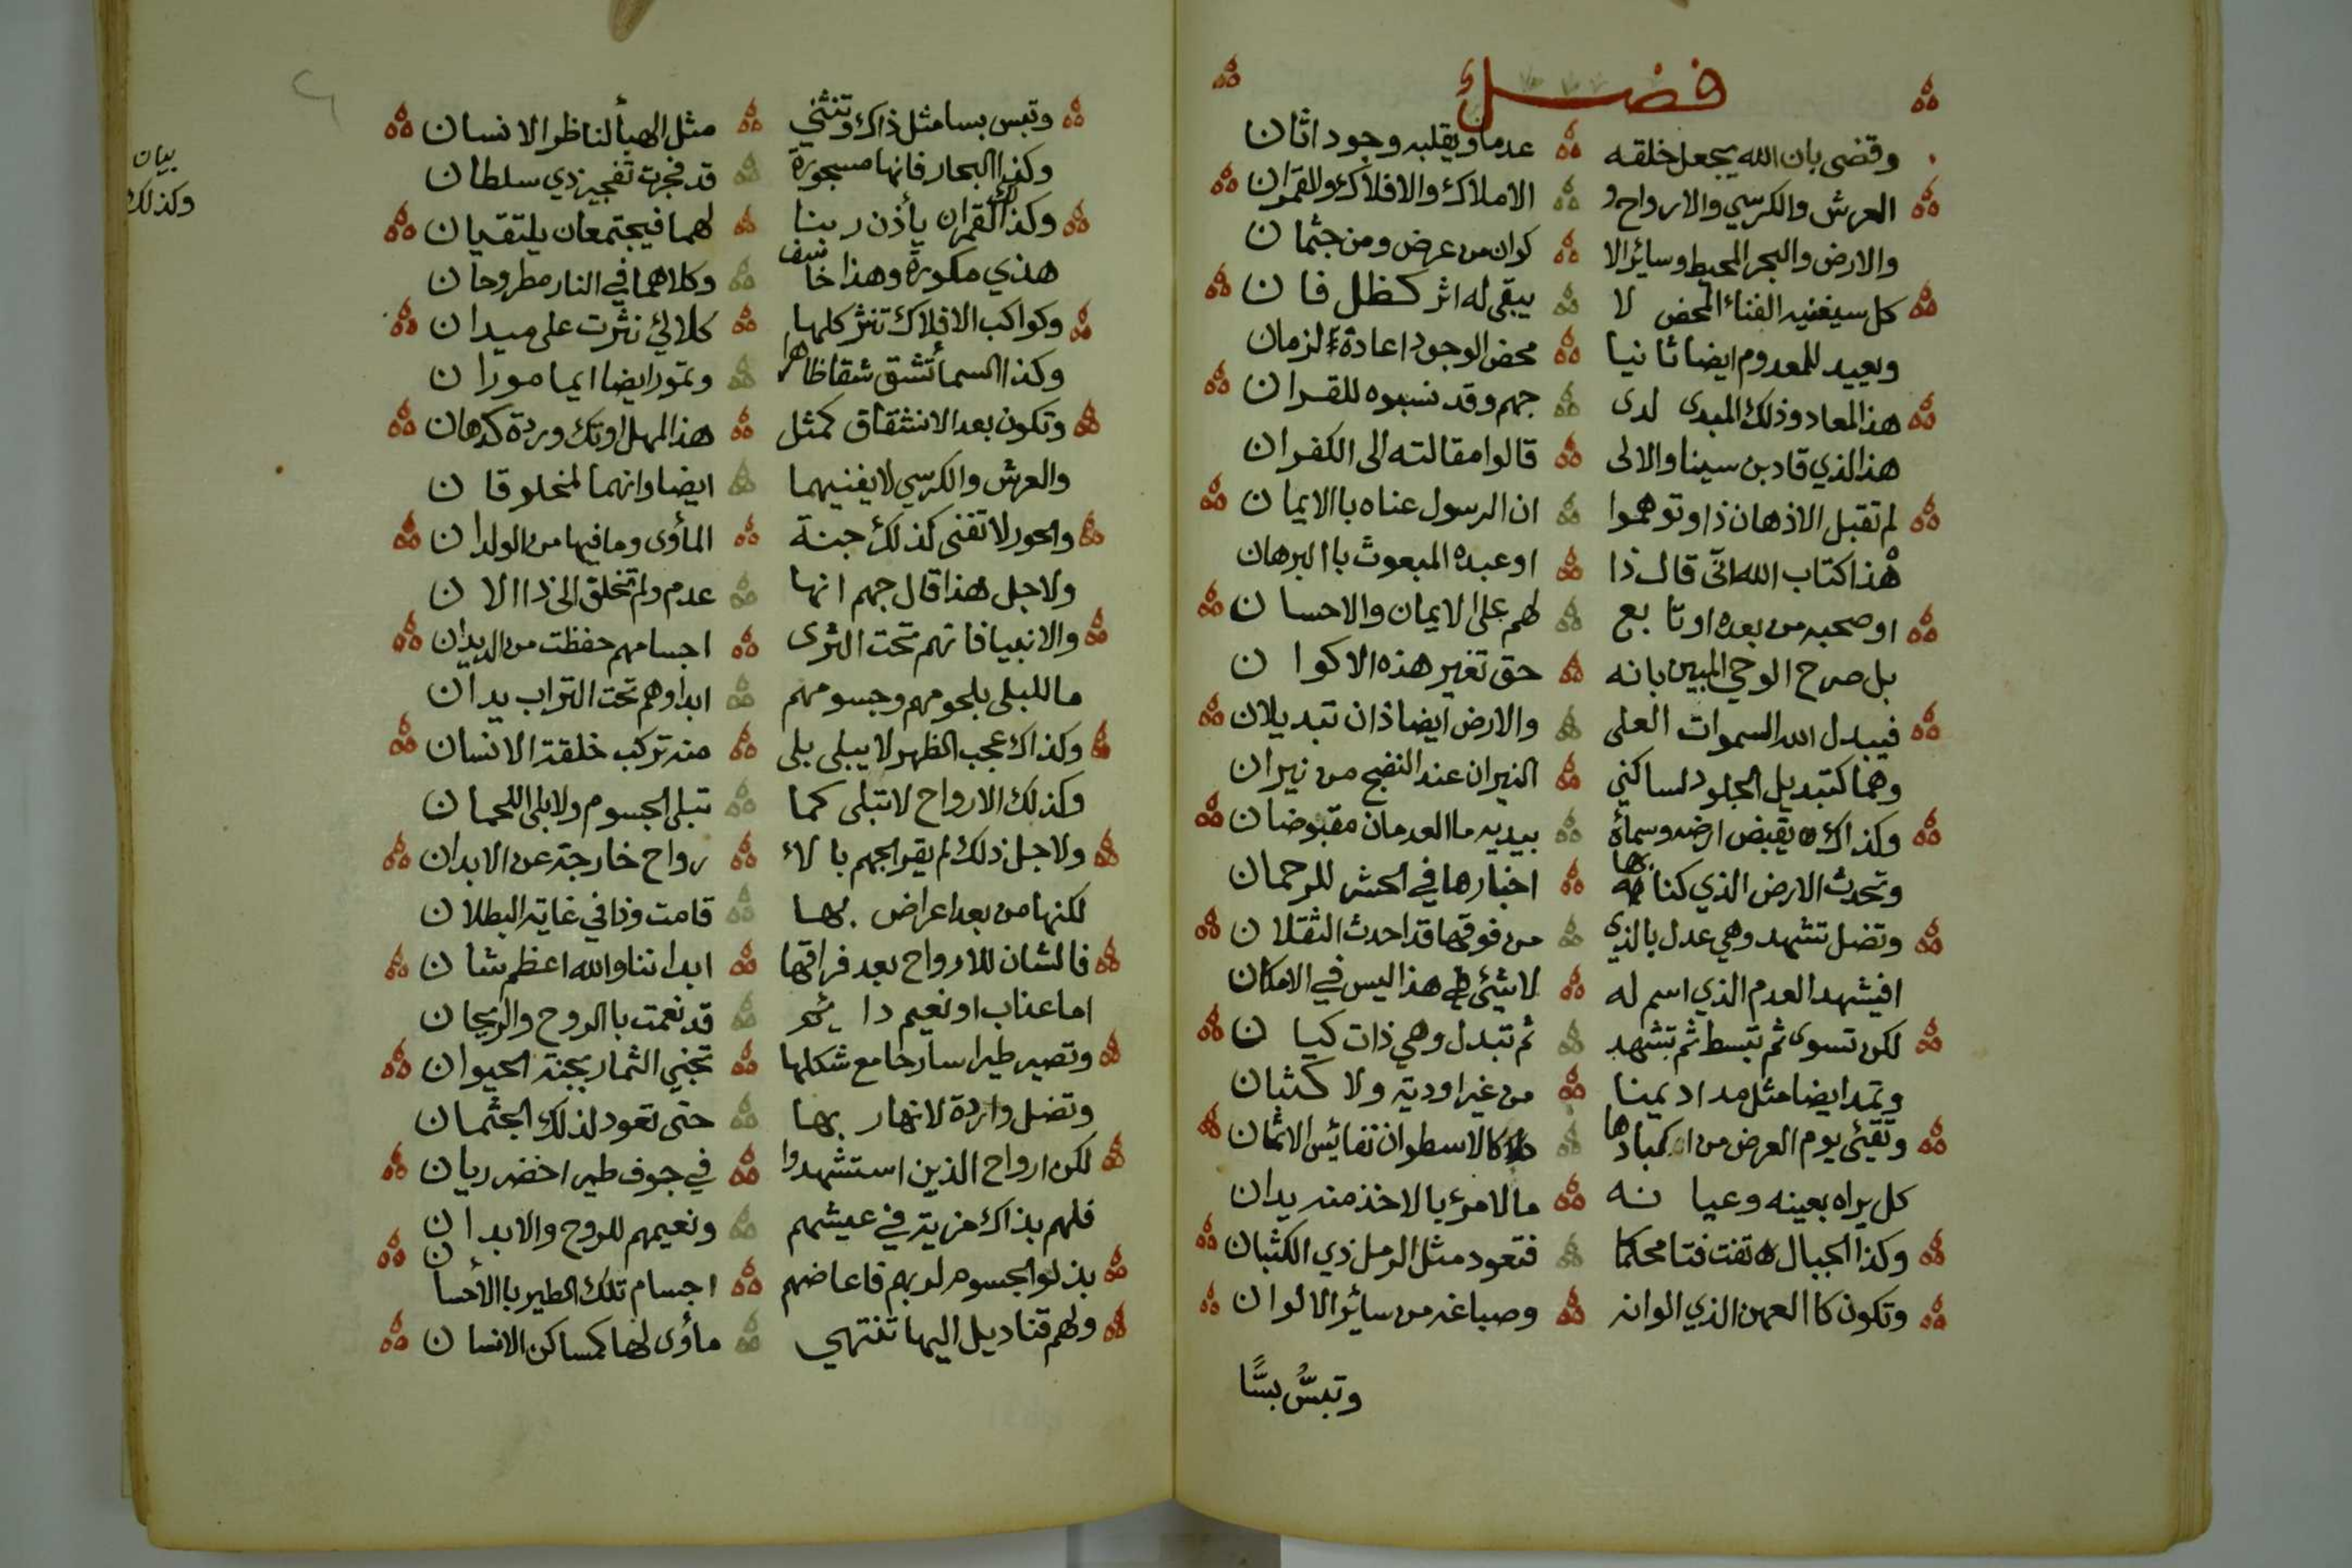 فصل
وقضى بان الله يجعل خلقه عدما ويقلبه وجودا ثان
العرش والكرسي والارواح و الاملاك والافلاك والقمران
والارض والبحر المحيط وسائر الا كوان من عرض ومن جثمان
كل سيفنيه الفناء المحض لا يبقى له اثر كظل فان
ويعيد للمعدوم ايضا ثانيا محض الوجود اعادة لزمان
هذا المعاد وذلك المبدى لدى جهم وقد نسبوه للقران
هذا الذي قاد بن سينا والالى قالوا مقالته الى الكفران
لم تقبل الاذهان ذا وتوهموا ان الرسول عناه باالايمان
هذا كتاب الله انى قال ذا او عبده المبعوث باالبرهان
او صحبه من بعده او تابع لهم على الايمان والاحسان
بل صرح الوحي المبين بانه حق تغير هذه الاكوان
فيبدل الله السموات العلى والارض ايضا ذان تبديلان
وهما كتبديل الجلود لساكني النيران عند النضج من نيران
وكذاك يقبض ارضه وسمأه بيديه ما العدمان مقبوضان
وتحدث الارض الذي كنا بها اخبارها في الحشر للرحمان
وتضل تشهد وهي عدل بالذي من فوقها قد احدث الثقلان
افيشهد العدم الذي اسم له لا شيئ هذا ليس في الامكان
لكن تسوى ثم تبسط ثم تشهد ثم تبدل وهي ذات كيان
وتمد ايضا مثل مد اديمنا من غير اودية ولا كثبان
وتقيئ يوم العرض من اكبادها كالاسطوان نفائس الاثمان
كل يراه بعينه وعيانه ما لامرئ بالاخذ منه يدان
وكذا الجبال تفت فتا محكما فتعود مثل الرمل ذي الكثبان
وتكون كاالعهن الذي الوانه وصباغه من سائر الالوان
وتبسُّ بسًّا
وتبس بسا مثل ذاك وتنثني مثل الهبأ لناظر الانسان
وكذا البحار فانها مسجورة قد فجرت تفجير ذي سلطان
وكذلك القمران يأذن ربنا لهما فيجتمعان يلتقيان
هذي مكورة وهذا خاسف وكلاهما في النار مطروحان
وكواكب الافلاك تنثر كلها كلالئ نثرت على ميدان
وكذا السمأ تشق شقا ظاهرا وتمور ايضا ايما موران
وتكون بعد الانشقاق كمثل هذا المهل او تك وردة كدهان
والعرش والكرسي لا يفنيهما ايضا وانهما لمخلوقان
والحور لا تفنى كذلك جنة المأوى وما فيها من الولدان
ولاجل هذا قال جهم انها عدم ولم تخلق الى ذا الان
والانبيا فانهم تحت الثرى اجسامهم حفظت من الديدان
ما للبلى بلحومهم وجسومهم ابدا وهم تحت التراب يدان
وكذاك عجب الظهر لا يبلى بلى منه تركب خلقة الانسان
وكذلك الارواح لا تبلى كما تبلى الجسوم ولا بلى اللحمان
ولاجل ذلك لم يقر الجهم بالا رواح خارجة عن الابدان
لكنها من بعد اعراض بها قامت وذا في غاية البطلان
فالشان للارواح بعد فراقها ابداننا والله اعظم شان
اما عذاب او نعيم دائم قد نعمت باالروح والريحان
وتصير طيرا سارحا مع شكلها تجني الثمار بجنة الحيوان
وتضل واردة لانهار بها حتى تعود لذلك الجثمان
لكن ارواح الذين استشهدوا في جوف طير اخضر ريان
فلهم بذاك مزية في عيشهم ونعيمهم للروح والابدان
بذلوا الجسوم لربهم فاعاضهم اجسام تلك الطير باالاحسان
ولهم قناديل اليها تنتهي مأوى لها كمساكن الانسان
بيان
وكذلك